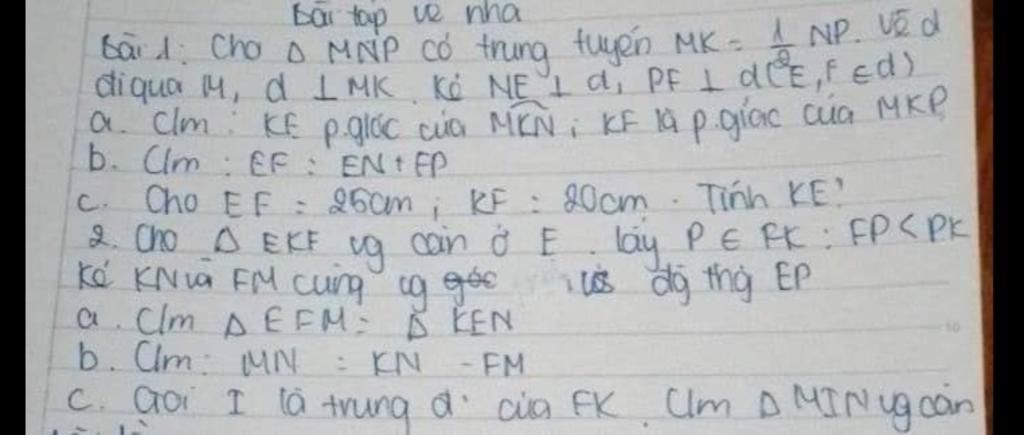 Bài tập về nhà
Bài 1: Cho Δ MNP có trung tuyến MK = 1/2 NP. Vẽ d
đi qua M, d ⊥ MK. Kẻ NE ⊥ d, PF ⊥ d (E, F ∈ d)
a. C/m: KE p.giác của MKN; KF là p.giác của MKP
b. C/m: EF = EN + FP
c. Cho EF = 25cm; KF = 20cm. Tính KE?
2. Cho Δ EKF vg cân ở E. lấy P ∈ FK: FP < PK
Kẻ KN và FM cùng vg góc với đg thg EP
a. C/m Δ EFM = Δ KEN
b. C/m: MN = KN - FM
c. Gọi I là trung đ' của FK. C/m Δ MIN vg cân